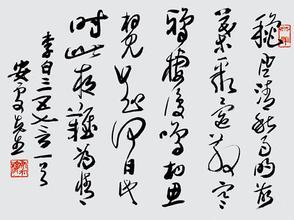 秋風清秋月明落
葉聚還散寒
鴉棲復驚相思
相見知何日此
時此夜難為情
李白三五七言一首